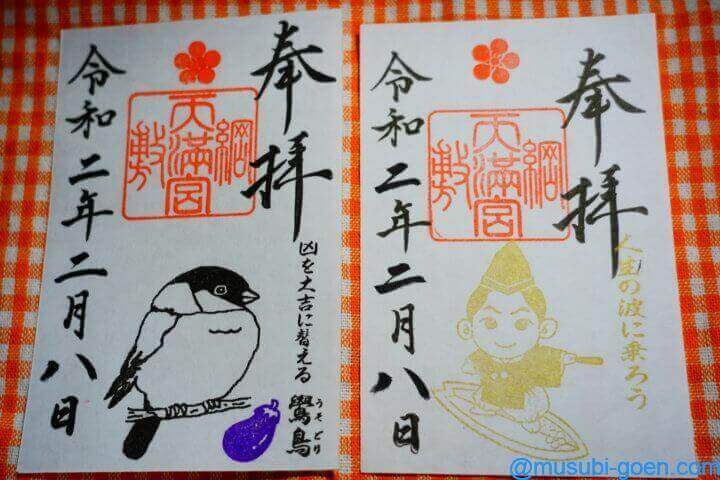 奉拝
綱敷天満宮
令和二年二月八日
凶を大吉に替える
鷽鳥
うそどり
奉拝
綱敷天満宮
令和二年二月八日
人生の波に乗ろう
@musubi-goen.com